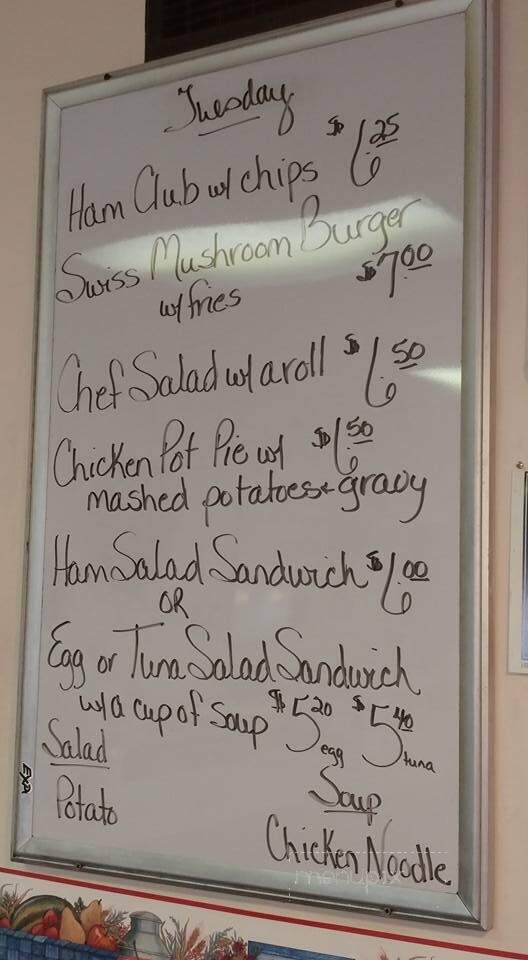 Tuesday
Ham Club w/ chips $6.25
Swiss Mushroom Burger
w/ fries $7.00
Chef Salad w/ a roll $6.50
Chicken Pot Pie w/ $6.50
mashed potatoes + gravy
Ham Salad Sandwich $6.00
OR
Egg or Tuna Salad Sandwich
w/ a cup of Soup $5.20 egg $5.40 tuna
Salad
Potato
Soup
Chicken Noodle